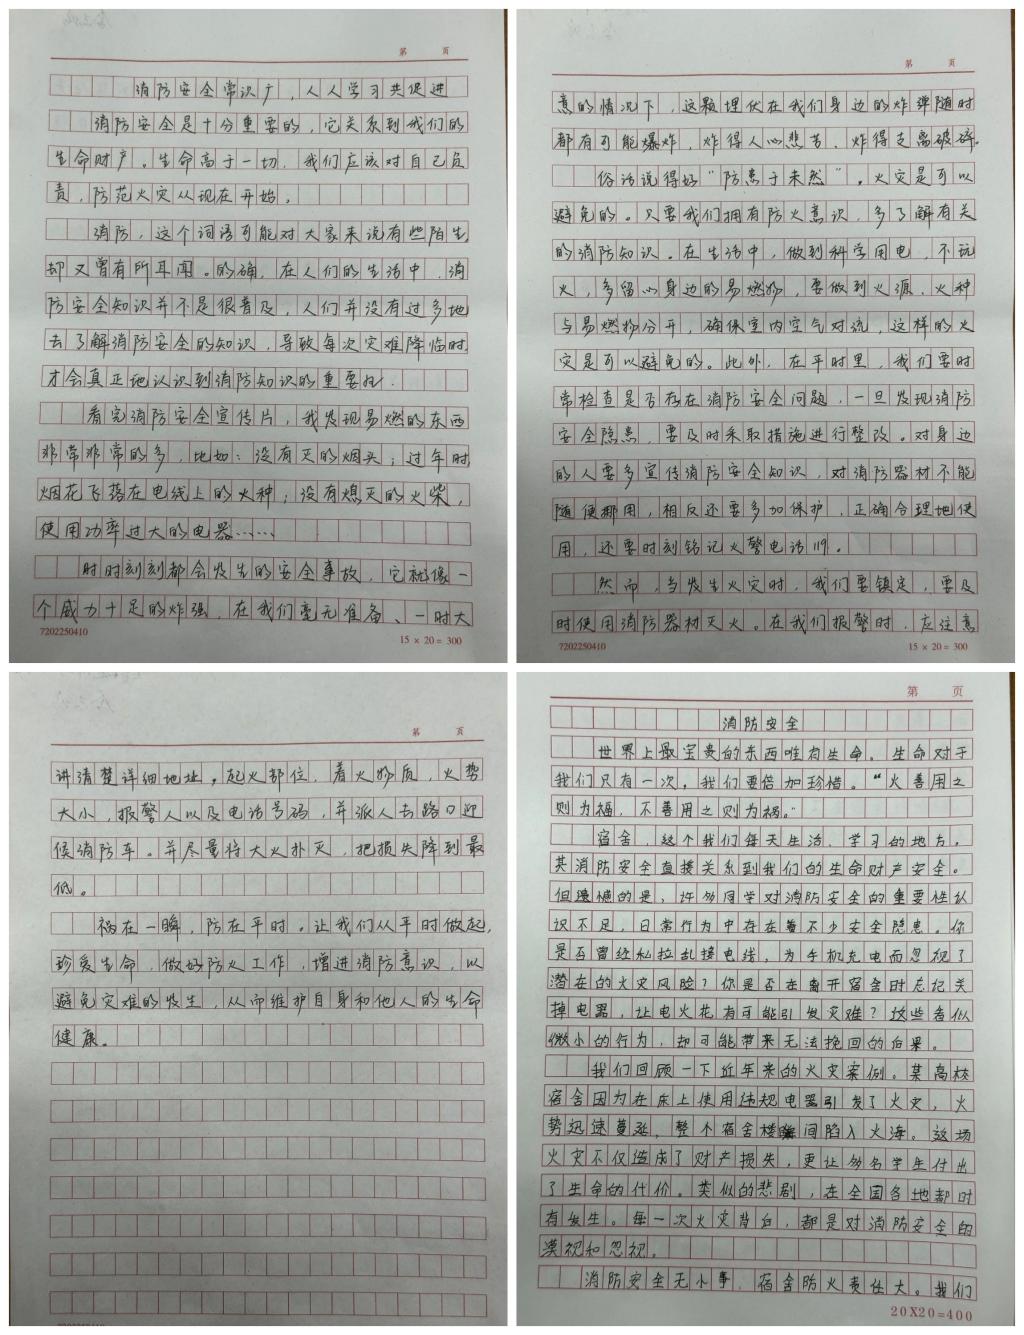 第 页
消防安全常识广，人人学习共促进
消防安全是十分重要的，它关系到我们的
生命财产。生命高于一切，我们应该对自己负
责，防范火灾从现在开始。
消防，这个词语可能对大家来说有些陌生，
却又曾有所耳闻。的确，在人们的生活中，消
防安全知识并不是很普及，人们并没有过多地
去了解消防安全的知识，导致每次灾难降临时，
才会真正地认识到消防知识的重要性。
看完消防安全宣传片，我发现易燃的东西
非常非常的多，比如：没有灭的烟头；过年时
烟花飞落在电线上的火种；没有熄灭的火柴，
使用功率过大的电器……
时时刻刻都会发生的安全事故，它就像一
个威力十足的炸弹，在我们毫无准备、一时大
7202250410
15 × 20 = 300
第 页
意的情况下，这颗埋伏在我们身边的炸弹随时
都有可能爆炸，炸得人心悲苦、炸得支离破碎。
俗话说得好“防患于未然”，火灾是可以
避免的。只要我们拥有防火意识，多了解有关
的消防知识。在生活中，做到科学用电，不玩
火，多留心身边的易燃物，要做到火源、火种
与易燃物分开，确保室内空气对流，这样的火
灾是可以避免的。此外，在平时里，我们要时
常检查是否存在消防安全问题，一旦发现消防
安全隐患，要及时采取措施进行整改。对身边
的人要多宣传消防安全知识，对消防器材不能
随便挪用，相反还要多加保护，正确合理地使
用，还要时刻铭记火警电话119。
然而，当发生火灾时，我们要镇定，要及
时使用消防器材灭火。在我们报警时，应注意
7202250410
15 × 20 = 300
第 页
讲清楚详细地址，起火部位，着火物质，火势
大小，报警人以及电话号码，并派人去路口迎
候消防车。并尽量将大火扑灭，把损失降到最
低。
祸在一瞬，防在平时。让我们从平时做起，
珍爱生命，做好防火工作，增进消防意识，以
避免灾难的发生，从而维护自身和他人的生命
健康。
第 页
消防安全
世界上最宝贵的东西唯有生命。生命对于
我们只有一次，我们要倍加珍惜。“火善用之
则为福，不善用之则为祸。”
宿舍，这个我们每天生活、学习的地方，
其消防安全直接关系到我们的生命财产安全。
但遗憾的是，许多同学对消防安全的重要性认
识不足，日常行为中存在着不少安全隐患。你
是否曾经私拉乱接电线，为手机充电而忽视了
潜在的火灾风险？你是否在离开宿舍时忘记关
掉电器，让电火花有可能引发灾难？这些看似
微小的行为，却可能带来无法挽回的后果。
我们回顾一下近年来的火灾案例。某高校
宿舍因为在床上使用违规电器引发了火灾，火
势迅速蔓延，整个宿舍楼瞬间陷入火海。这场
火灾不仅造成了财产损失，更让多名学生付出
了生命的代价。类似的悲剧，在全国各地都时
有发生。每一次火灾背后，都是对消防安全的
漠视和忽视。
消防安全无小事，宿舍防火责任大。我们
20X20=400